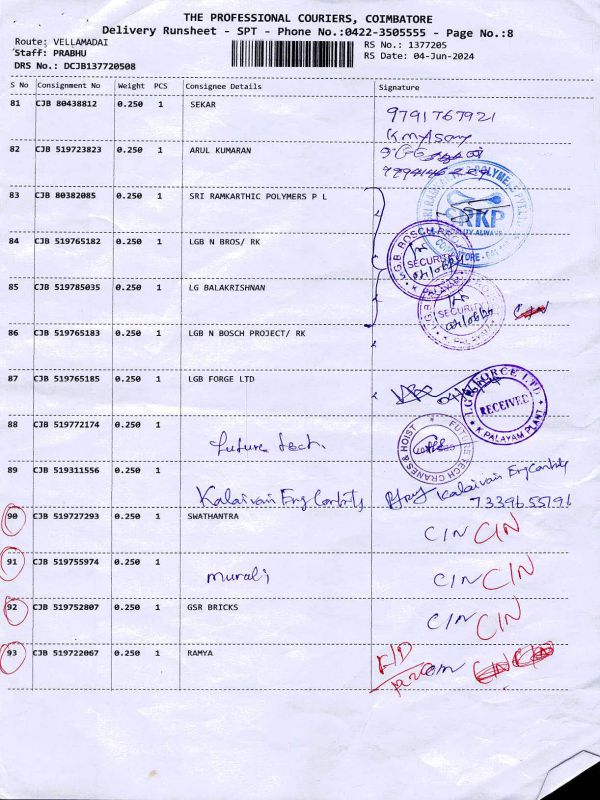 THE PROFESSIONAL COURIERS, COIMBATORE
Delivery Runsheet - SPT - Phone No.:0422-3505555 - Page No.:8
Route: VELLAMADAI
RS No.: 1377205
Staff: PRABHU
RS Date: 04-Jun-2024
DRS No.: DCJB137720508
S No Consignment No Weight PCS Consignee Details Signature
81 CJB 80438812 0.250 1 SEKAR
9791767921
82 CJB 519723823 0.250 1 ARUL KUMARAN
83 CJB 80382085 0.250 1 SRI RAMKARTHIC POLYMERS P L
SRKP
84 CJB 519765182 0.250 1 LGB N BROS/ RK
SECURITY
85 CJB 519785035 0.250 1 LG BALAKRISHNAN
SECURITY
86 CJB 519765183 0.250 1 LGB N BOSCH PROJECT/ RK
87 CJB 519765185 0.250 1 LGB FORGE LTD
L.G.B. FORGE LTD
RECEIVED
K. PALAYAM PLANT
88 CJB 519772174 0.250 1 future tech.
FUTURE TECH CRANES & HOIST
89 CJB 519311556 0.250 1 Kalaivani Eng
7339655796
90 CJB 519727293 0.250 1 SWATHANTRA CIN CIN
91 CJB 519755974 0.250 1 murali CIN CIN
92 CJB 519752807 0.250 1 GSR BRICKS CIN CIN
93 CJB 519722067 0.250 1 RAMYA